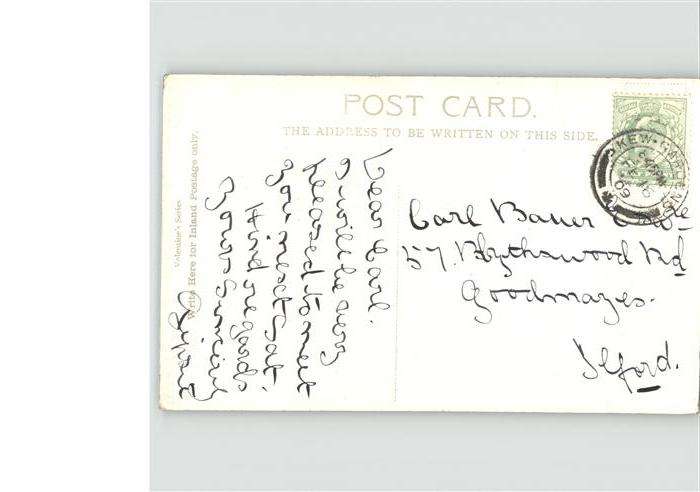 POST CARD.
THE ADDRESS TO BE WRITTEN ON THIS SIDE.
Valentine's Series
Write Here for Inland Postage only.
Dear Carl.
I will be very
pleased to meet
you next Sat.
Kind regards
Yours Sincerely
KEW-GARDENS
09
Carl Bauer
57. Blythswood Rd
Goodmayes.
Ilford.